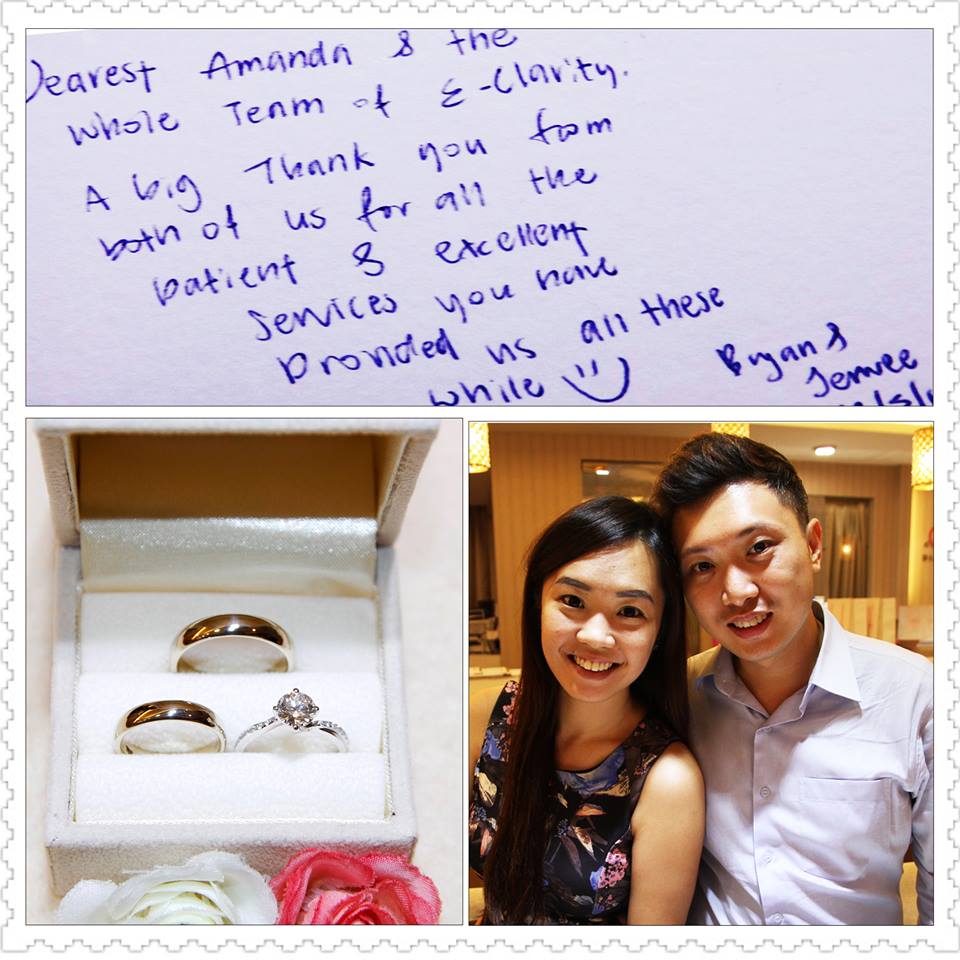 Dearest Amanda & the
whole Team of E-Clarity.
A big Thank you from
both of us for all the
patient & excellent
services you have
provided us all these
while
Bryan &